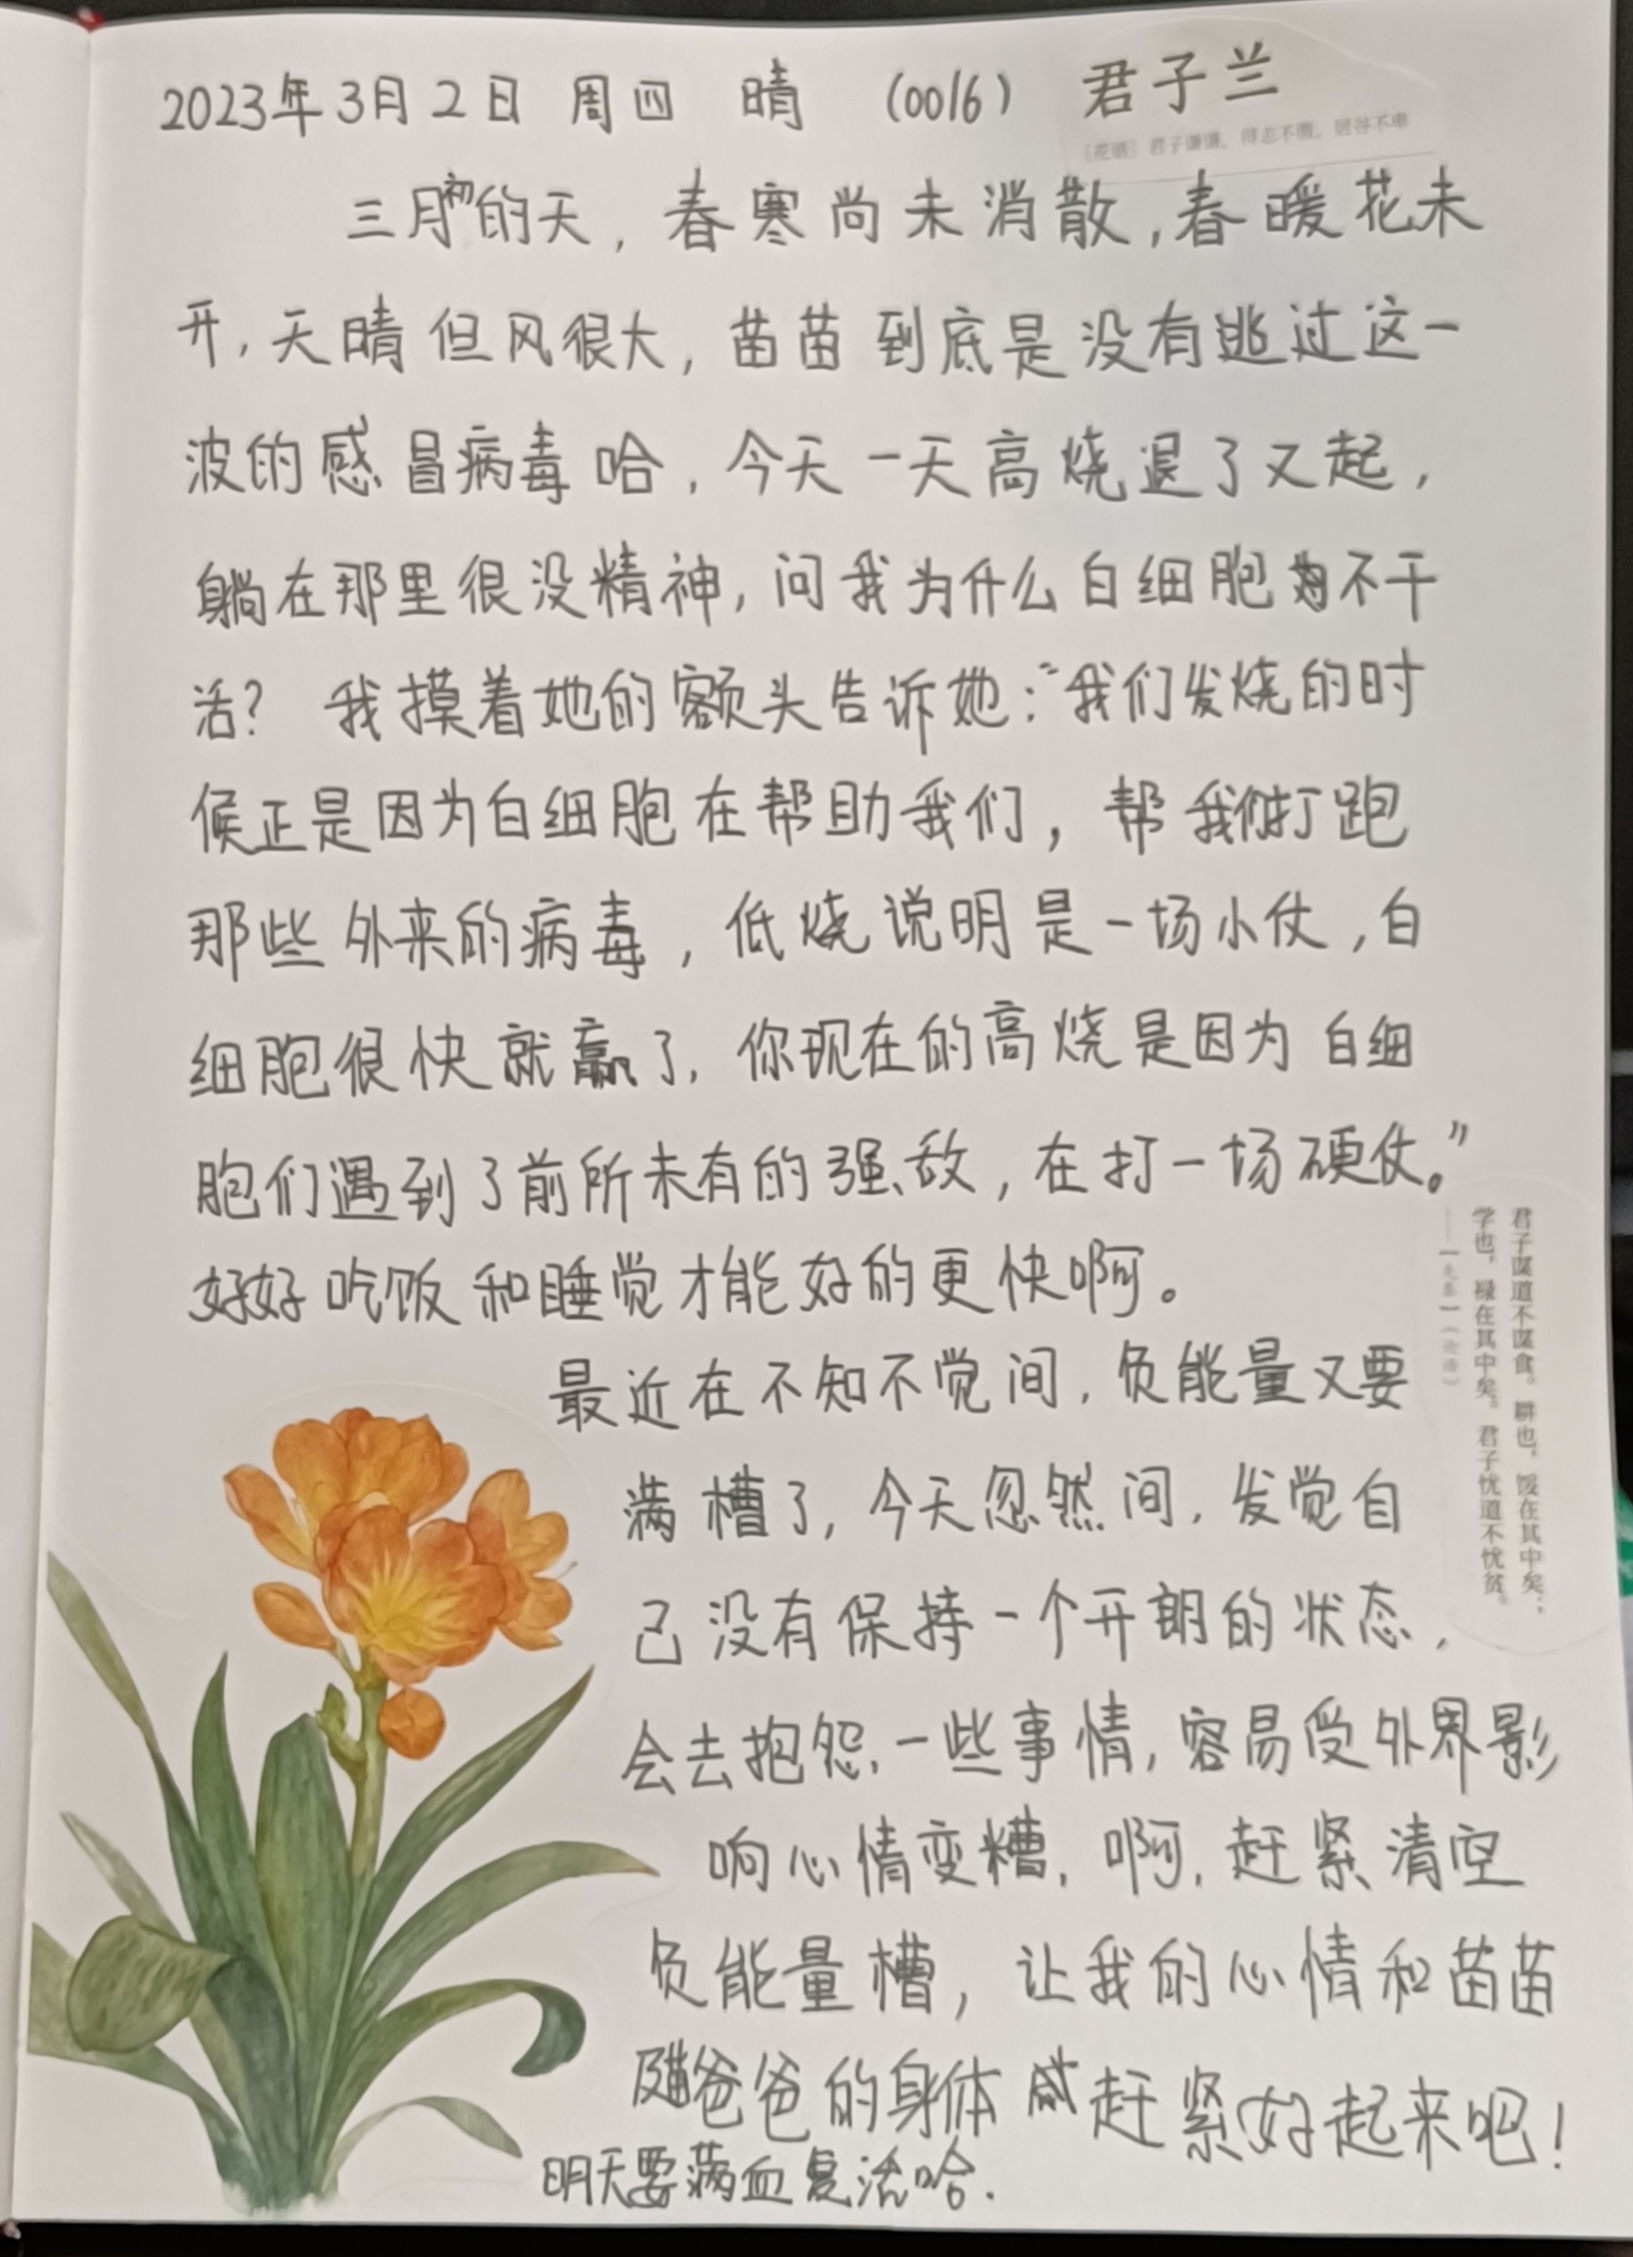 2023年3月2日 周四 晴 (0016) 君子兰
[花语] 君子谦谦，得志不傲，居谷不卑
三月初的天，春寒尚未消散，春暖花未
开，天晴但风很大，苗苗到底是没有逃过这一
波的感冒病毒哈，今天一天高烧退了又起，
躺在那里很没精神，问我为什么白细胞不干
活？ 我摸着她的额头告诉她：“我们发烧的时
候正是因为白细胞在帮助我们，帮我们打跑
那些外来的病毒，低烧说明是一场小仗，白
细胞很快就赢了，你现在的高烧是因为白细
胞们遇到了前所未有的强敌，在打一场硬仗。”
好好吃饭和睡觉才能好的更快啊。
君子谋道不谋食。耕也，馁在其中矣；
学也，禄在其中矣。君子忧道不忧贫。
最近在不知不觉间，负能量又要
满槽了，今天忽然间，发觉自
己没有保持一个开朗的状态，
会去抱怨一些事情，容易受外界影
响心情变糟，啊，赶紧清空
负能量槽，让我的心情和苗苗
爸爸的身体赶紧好起来吧！
明天要满血复活哈.